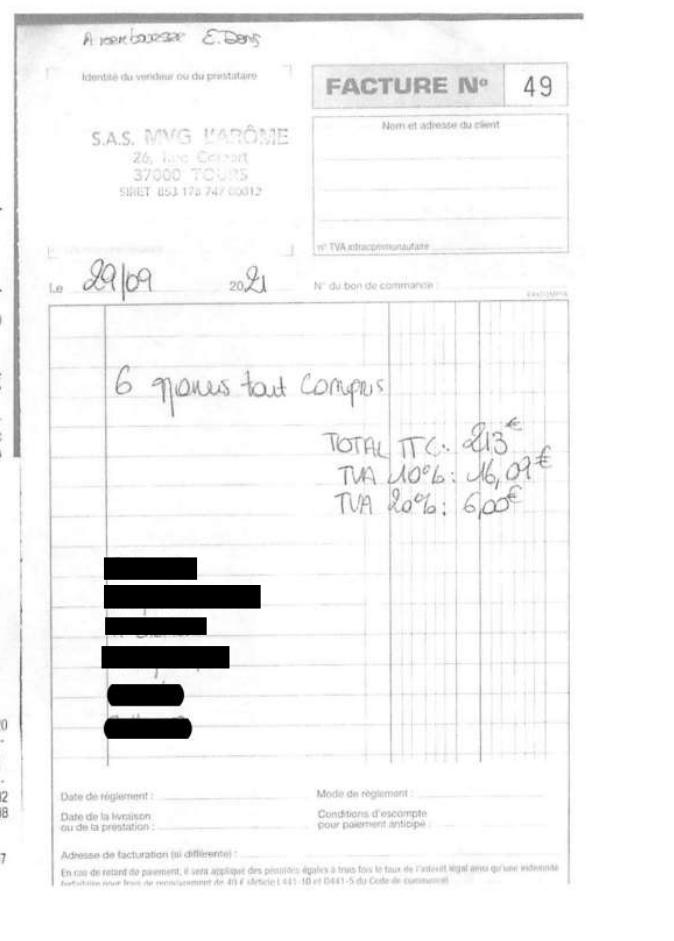 A rembourser E. Denis
Identité du vendeur ou du prestataire
FACTURE Nº 49
Nom et adresse du client
S.A.S. MVG L'ARÔME
26, Rue
37000 TOURS
SIRET 853 178 747 00012
n° TVA intracommunautaire
Le 29/09 2021
N° du bon de commande :
6 menus tout compris
TOTAL TTC: 213€
TVA 10%: 16,09€
TVA 20%: 6,00€
Date de règlement :
Mode de règlement :
Date de la livraison
ou de la prestation :
Conditions d'escompte
pour paiement anticipé :
Adresse de facturation (si différente) :
En cas de retard de paiement, il sera appliqué des pénalités égales à trois fois le taux de l'intérêt légal ainsi qu'une indemnité
forfaitaire pour frais de recouvrement de 40 € (Article L441-10 et D441-5 du Code de commerce)